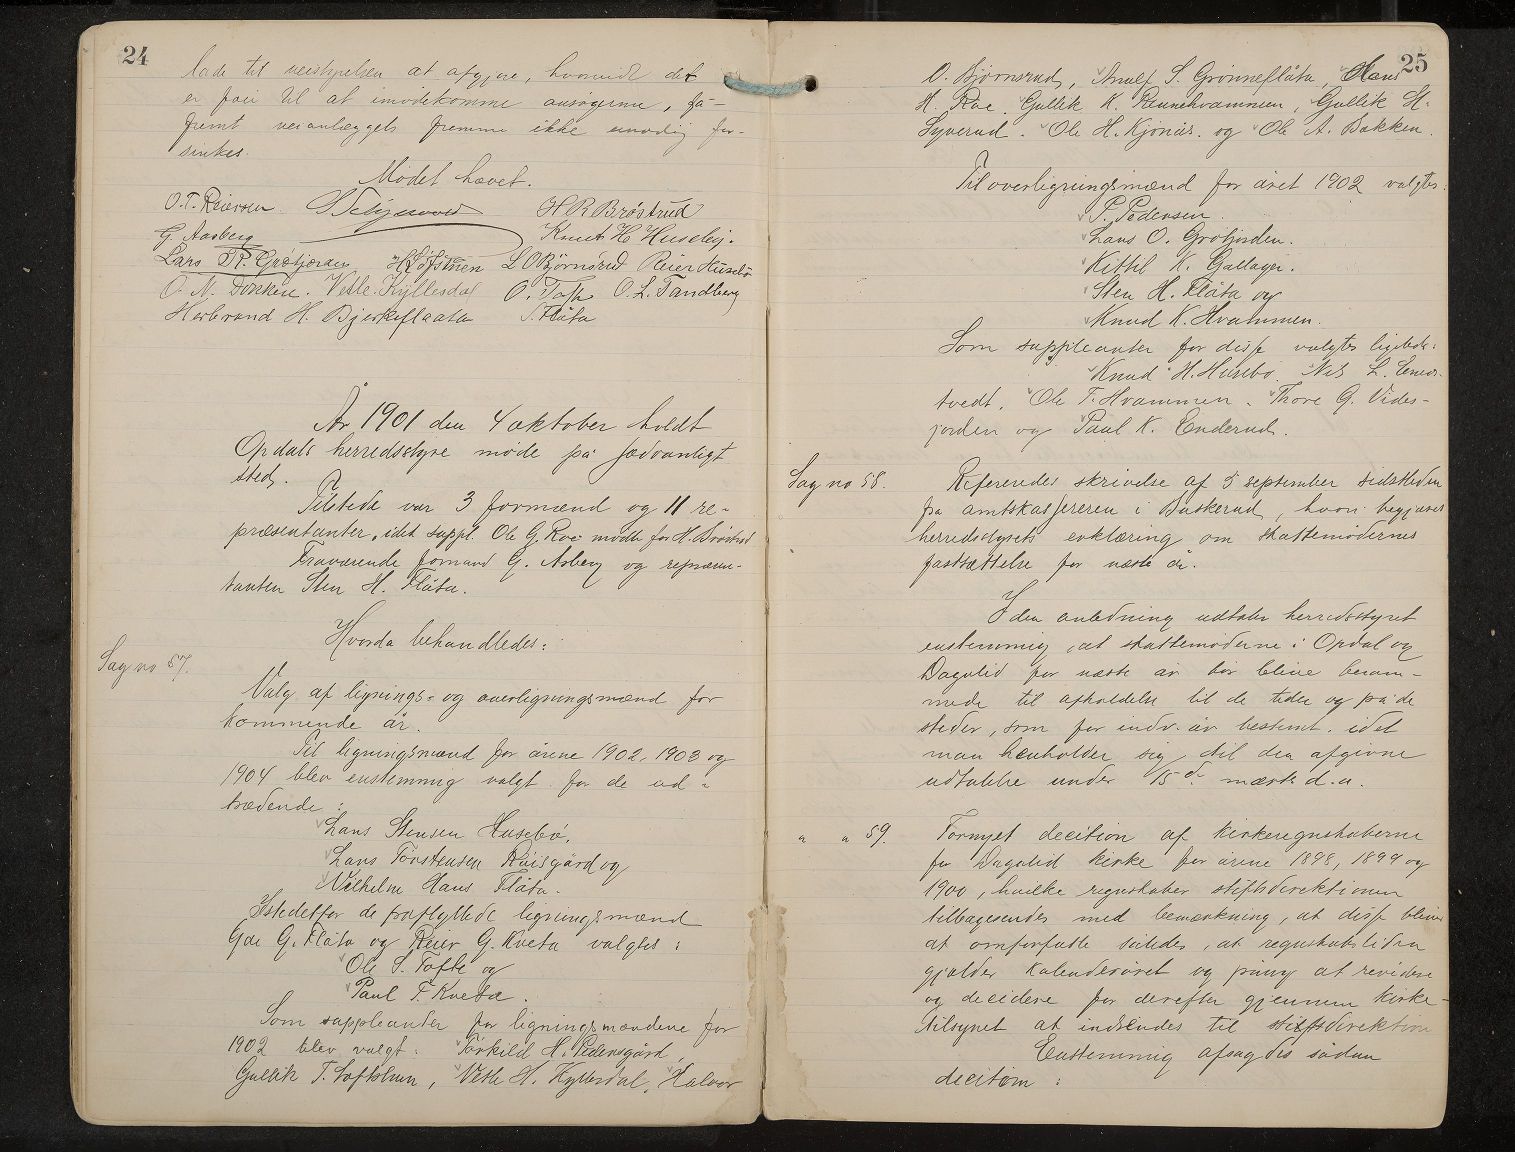 24
lade til veistyrelsen at afgjøre, hvorvidt det
er frei til at imødekomme ansøgerne, så-
fremt veianlæggets fremme ikke unødig for-
sinkes.
Mødet hævet.
O. T. Reiersen. H R Brøstrud
G. Aasberg Knut H. Huseby.
Lars T. R. Grøtjøran H. Loftsteen L O Bjørnsrud Reier Husebø
O. N. Dokken. Vetle Kyllesdal O. Tofte O. L. Tandberg
Herbrand H. Bjerkeflaata S. Flåta
År 1901 den 4 oktober holdt
Opdals herredsstyre møde på sædvanligt
sted.
Tilstede var 3 formænd og 11 re-
præsentanter, idet suppl. Ole G. Roe mødte for H. Brøstrud
Fraværende formand G. Asberg og repræsen-
tanten Sten H. Flåta.
Hvorda behandledes:
Sag no 57.
Valg af lignings- og overligningsmænd for
kommende år.
Til ligningsmænd for årene 1902, 1903 og
1904 blev enstemmig valgt for de ud-
trædende:
Lars Stensen Husebø,
Lars Torstensen Ruisgård og
Vilhelm Hans Flåta.
Istedetfor de fraflyttede ligningsmænd
G. Flåta og Reier G. Kveta valgtes:
Ole S. Tofte og
Paul T. Kveta.
Som suppleanter for ligningsmændene for
1902 blev valgt: Torkild H. Pedersgård,
Gullik T. Loftshun, Vetle H. Kyllesdal, Halvor
25
O. Bjørnsrud, Arnulf S. Grønneflåta, Hans
H. Roe, Gullik K. Rennehvammen, Gullik H.
Syverud. Ole H. Kjønås. og Ole A. Bakken.
Til overligningsmænd for året 1902 valgtes:
P. Pedersen.
Lars O. Grøtjorden.
Kittil K. Gallager.
Sten H. Flåta og
Knud K. Hvammen.
Som suppleanter for disse valgtes ligeledes:
Knud H. Husebø. Nils L. Enders-
tvedt, Ole T. Hvammen. Thore G. Vides-
jorden og Paul K. Enderud.
Sag no 58.
Referendes skrivelse af 5 september sidstleden
fra amtskassereren i Buskerud, hvori begjæres
herredsstyrets erklæring om skattemødernes
fastsættelse for næste år.
I den anledning udtaler herredsstyret
enstemmig, at skattemøderne i Opdal og
Dagalid for næste år bør blive beram-
mede til afholdelse til de tider og på de
steder, som for indv. år bestemt, idet
man henholder sig til den afgivne
udtalelse under 15de marts d. a.
" " 59.
Fornyet decition af kirkeregnskaberne
for Dagalid kirke for årene 1898, 1899 og
1900, hvilke regnskaber stiftsdirektionen
tilbagesendes med bemærkning, at disse bliver
at omforfatte således, at regnskabstiden
gjælder kalenderåret og påny at revidere
og decidere for derefter gjennem kirke-
tilsynet at indsendes til stiftsdirektion
Enstemmig afsagdes sådan
decition: